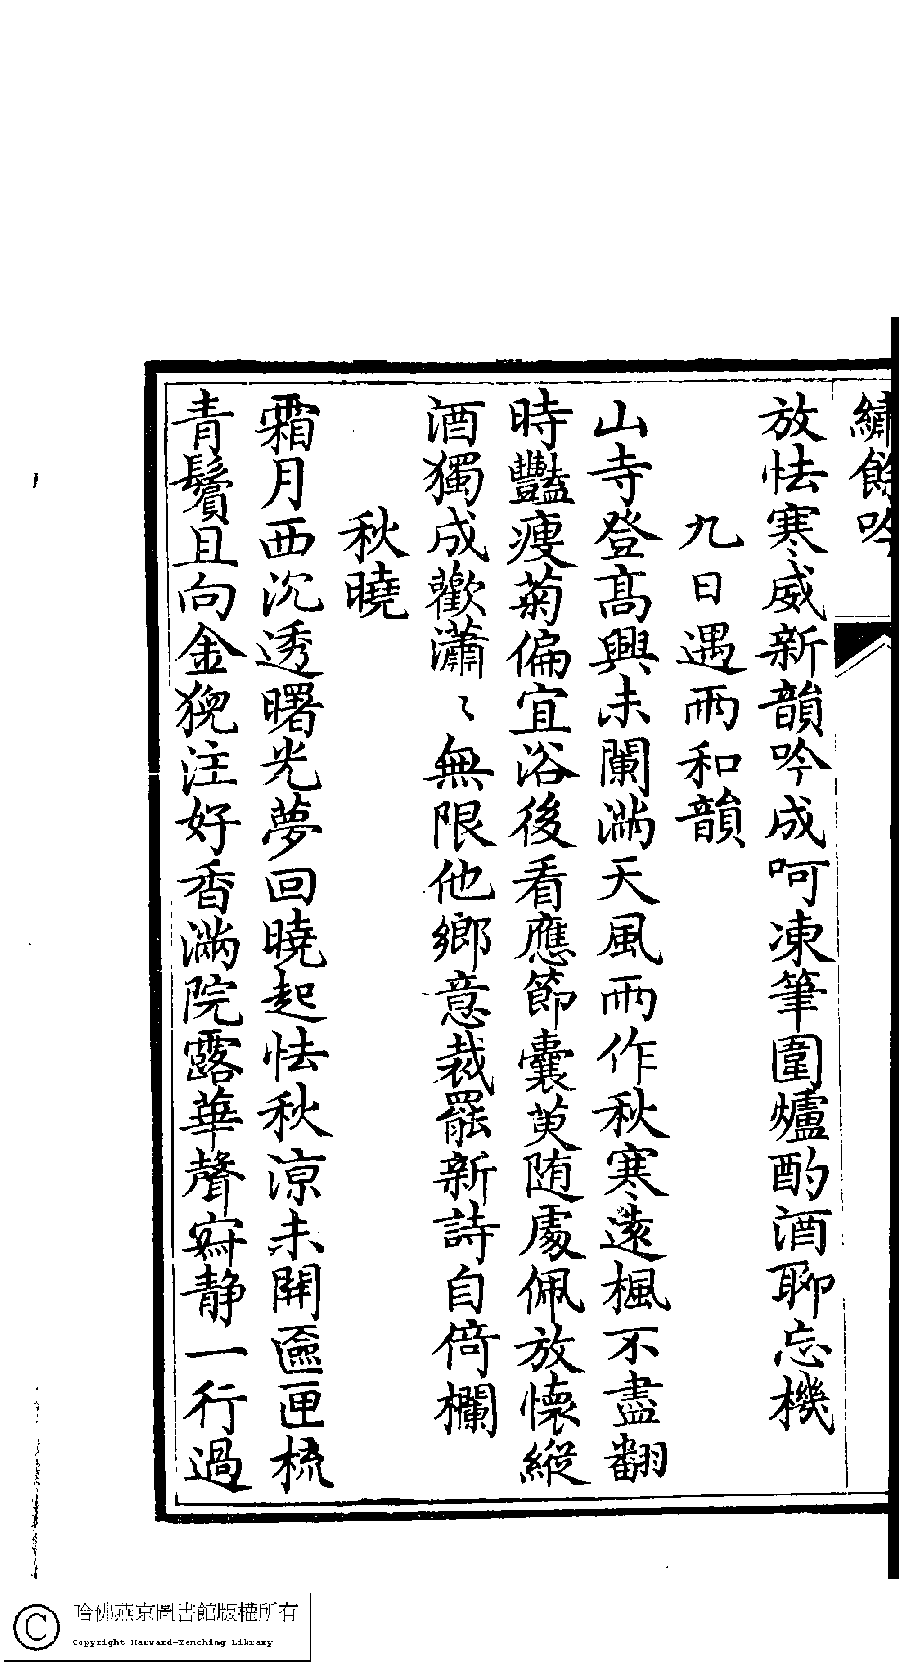 繡餘吟
放怯寒威新韻吟成呵凍筆圍爐酌酒聊忘機
九日遇雨和韻
山寺登高興未闌滿天風雨作秋寒遠楓不盡翻
時豔瘦菊偏宜浴後看應節囊萸随處佩放懷縱
酒獨成歡瀟〻無限他鄉意裁罷新詩自倚欄
秋曉
霜月西沉透曙光夢回曉起怯秋涼未開匳匣梳
青鬢且向金猊注好香滿院露華聲寂静一行過
哈佛燕京圖書館版權所有
Copyright Harvard-Yenching Library